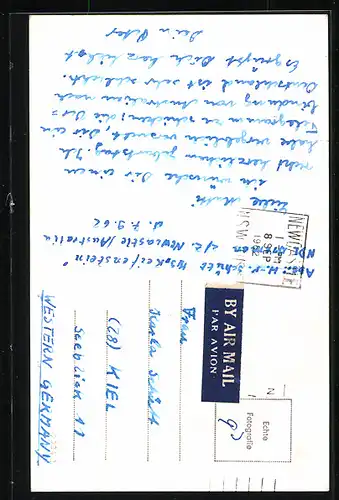 Abs.: H.-P. Schütt
"Reifenstein"
z.Z. Newcastle/Australia
d. 7.9.62
Liebe Mutti
ich wünsche Dir einen
recht herzlichen Geburtstag. Ich
habe vergeblich versucht, Dir ein
Telegramm zu schicken; die Ver=
bindung von Australien nach
Deutschland ist sehr schlecht.
Es grüßt Dich herzlichst
Dein Peter
NEWCASTLE
8 SEP
1962
N.S.W.
BY AIR MAIL
PAR AVION
Echte
Fotografie
Frau
Schütt
(23) KIEL
Seeblick 11
WESTERN GERMANY